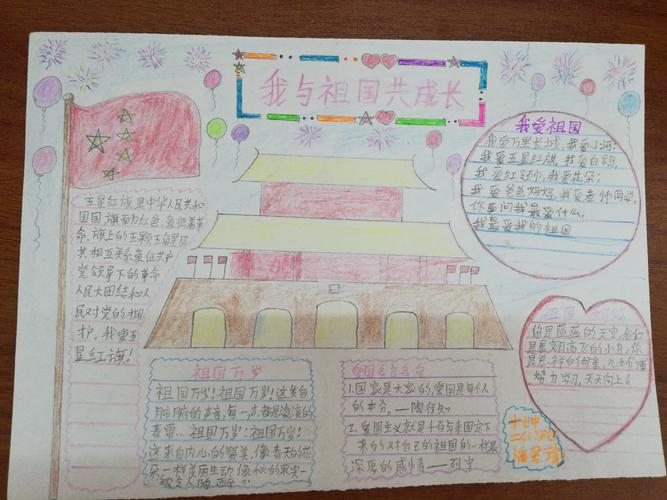 我与祖国共成长
我爱祖国
我爱万里长城,我爱小河;
我爱五星红旗,我爱白鸽,
我爱红领巾,我爱花朵;
我爱爸爸妈妈,我爱老师同学。
你要问我最爱什么,
我最爱我的祖国
五星红旗是中华人民共和
国国旗,旗面为红色,象征着革
命,旗上的五颗五角星及
其相互关系象征共产
党领导下的革命
人民大团结和人
民对党的拥
护,我爱五
星红旗!
祖国万岁
祖国万岁!祖国万岁!这发自
的声音,每一声都是滚滚的
春雷、祖国万岁!祖国万岁!
这来自内心的赞美,像春天的花
朵一样美丽生动,像秋的果实一
爱国名言名句
1.国家是大家的,爱国是每个人
的本分。——陶行知
2.爱国主义就是千百年来固定下
来的对自己的祖国的一种最
深厚的感情——列宁
祖国
你是蔚蓝的天空,我们
是展翅高飞的小鸟,你
是慈祥的母亲,儿女们
努力学习,天天向上!